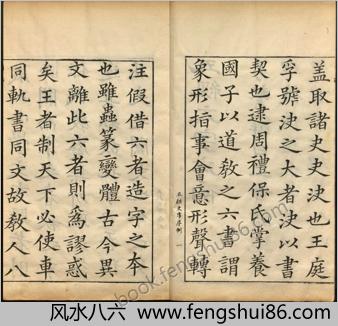 盖取諸史史決也王庭
孚號決之大者決以書
契也逮周禮保氏掌養
國子以道教之六書謂
象形指事會意形聲轉
注假借六者造字之本
也雖蟲篆變體古今異
文離此六者則為謬惑
矣王者制天下必使車
同軌書同文故教人八
五經文字序例 一
book.fengshui86.com
风水八六 www.fengshui86.com